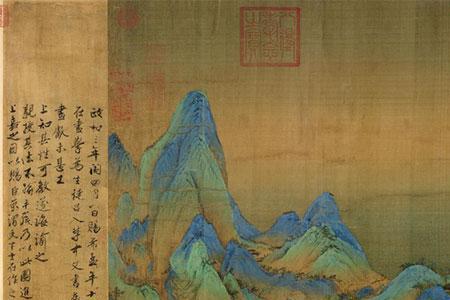 政和三年閏四月一日賜希孟年十
在畫學為生徒召入禁中文書
畫獻未甚工
上知其性可教遂誨諭之
親授其法不踰半歲乃以此圖進
上嘉之因以賜臣京謂天下士在作之